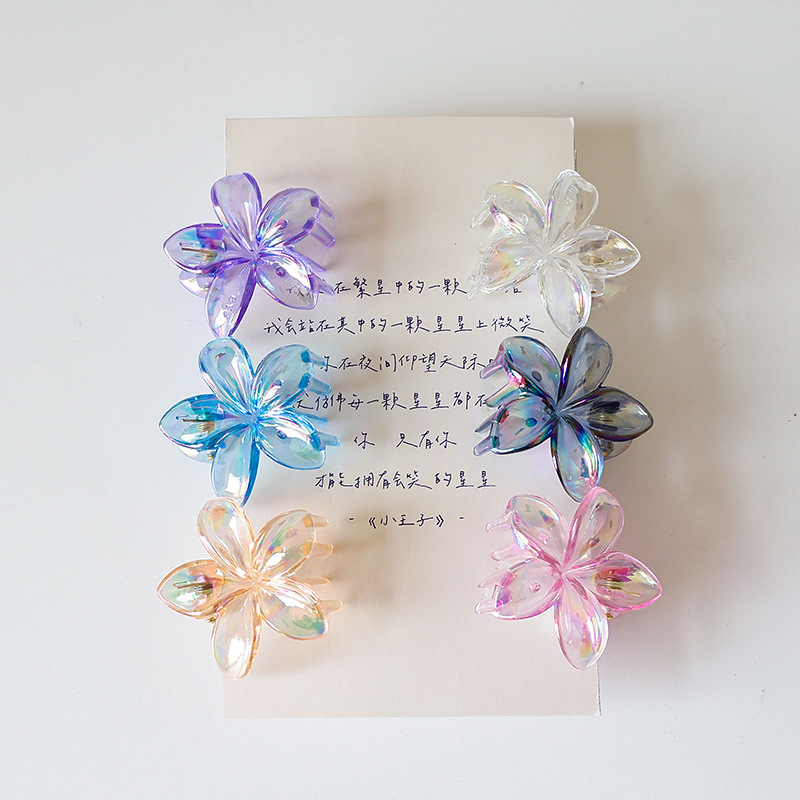 在繁星中的一颗
我会站在其中的一颗星星上微笑
你在夜间仰望天际
仿佛每一颗星星都在
你 只有你
才能拥有会笑的星星
-《小王子》-